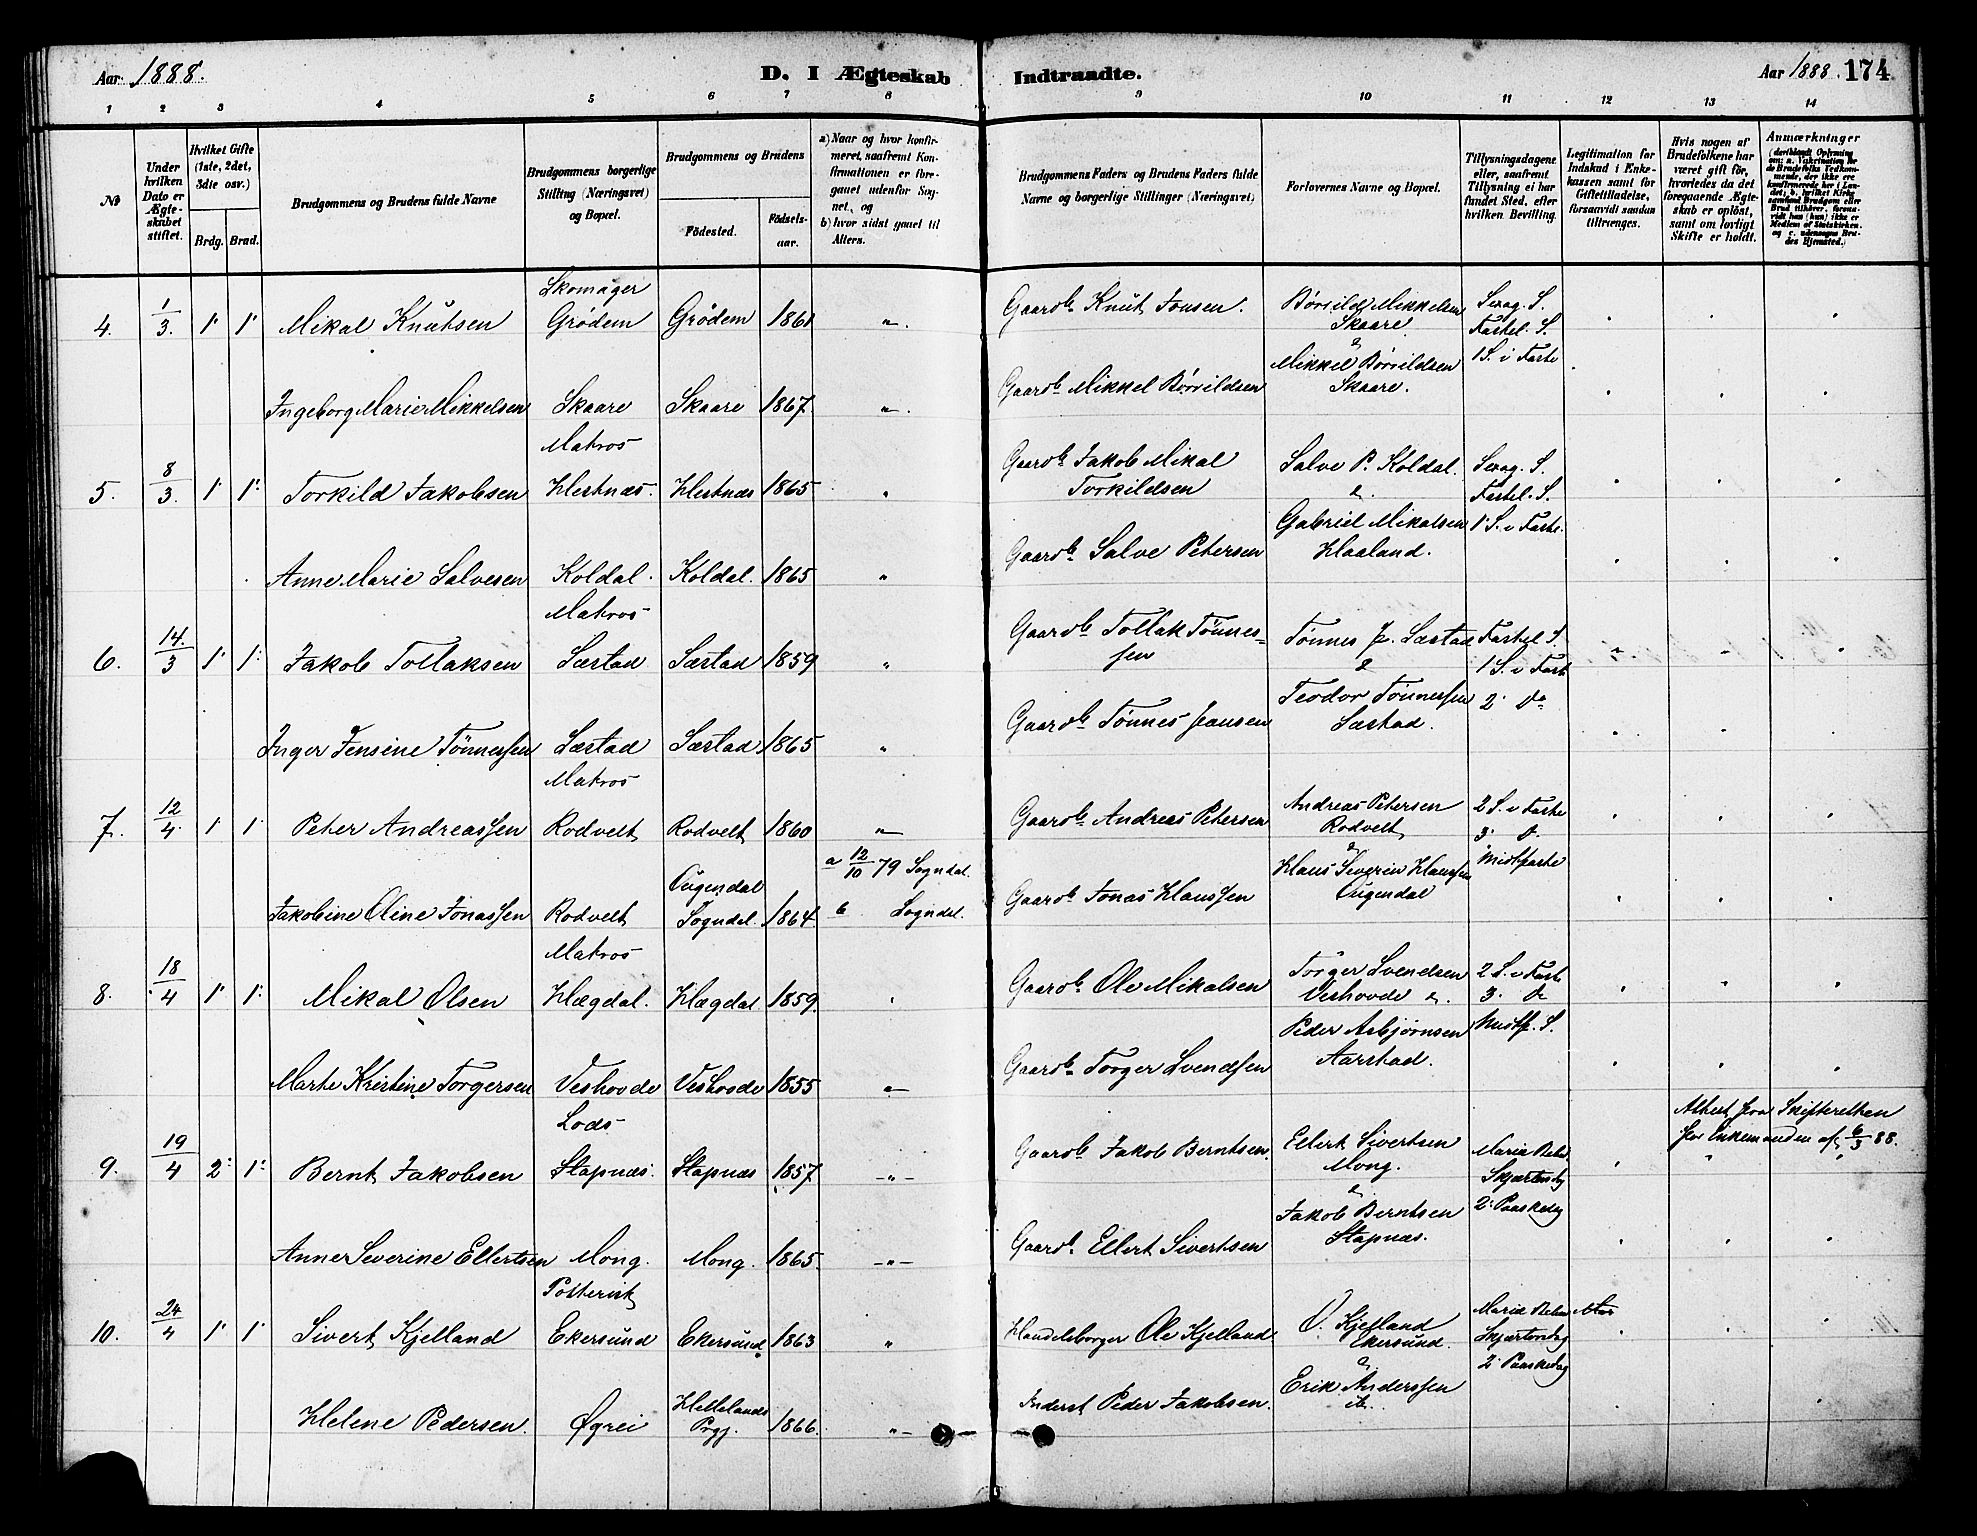 Aar 1888.
D. I Ægteskab Indtraadte.
Aar 1888. 174
1 2 3 4 5 6 7 8 9 10 11 12 13 14
№
Under hvilken Dato er Ægteskabet stiftet.
Hvilket Gifte (1ste, 2det, 3die osv.)
Brdg. Brud.
Brudgommens og Brudens fulde Navne
Brudgommens borgerlige Stilling (Næringsvei) og Bopæl.
Brudgommens og Brudens
Fødested. Fødselsaar.
a) Naar og hvor konfirmeret, saafremt Konfirmationen er foregaaet udenfor Sognet, og
b) hvor sidst gaaet til Alters.
Brudgommens Faders og Brudens Faders fulde Navne og borgerlige Stillinger (Næringsvei)
Forlovernes Navne og Bopæl.
Tillysningsdagene eller, saafremt Tillysning ei har fundet Sted, efter hvilken Bevilling.
Legitimation for Indskud i Enkekassen samt for Giftetilladelse, forsaavidt saadan tiltrænges.
Hvis nogen af Brudefolkene har været gift før, hvorledes da det foregaaende Ægteskab er opløst, samt om lovligt Skifte er holdt.
Anmærkninger
4. 1/3. 1. 1. Mikal Knutsen Skomager Grödem Grödem 1861 "
Gaardb. Knut Jonsen. Börvild Mikkelsen Skaare & Sexag. S. Fastel. S. 1 S. i Faste
Ingeborg Marie Mikkelsen Skaare Skaare 1867. "
Gaardb. Mikkel Börvildsen Mikkel Börvildsen Skaare.
5. 8/3. 1. 1. Torkild Jakobsen Matros Hestnæs. Hestnæs 1865 "
Gaardb. Jakob Mikal Torkildsen Salve P. Koldal. & Sexag. S. Fastel. S. 1 S. i Faste.
Anne Marie Salvesen Koldal. Koldal. 1865 "
Gaardb. Salve Petersen Gabriel Mikalsen Haaland.
6. 14/3 1. 1. Jakob Tollaksen Matros Sæstad Sæstad 1859 "
Gaardb. Tollak Tönnessen Tönnes J. Sæstad & Fastel S. 1 S. i Faste 2. do
Inger Jensine Tönnessen Sæstad Sæstad 1865 "
Gaardb. Tönnes Jansen Teodor Tönnessen Sæstad.
7. 12/4. 1. 1. Peter Andreassen Matros Rodvelt Rodvelt 1860 "
Gaardb. Andreas Petersen Andreas Petersen Rodvelt & 2 S. i Faste 3. do Midtfaste
Jakobine Oline Jonassen Rodvelt Sogndal. 1864. a 12/10 79 Sogndal. b Sogndal.
Gaardb. Jonas Klaussen Klaus Severin Klaussen
8. 18/4 1. 1. Mikal Olsen Matros Hægdal. Hægdal 1859. "
Gaardb. Ole Mikalsen Torger Svendsen Veshovde &. 2 S. i Faste 3. do Midtf. S.
Marte Kristine Torgersen Veshovde Veshovde 1855 "
Gaardb. Torger Svendsen Peder Asbjörnsen Aarstad.
9. 19/4 2. 1. Bernt Jakobsen Lods Stapnæs. Stapnæs 1857. "
Gaardb. Jakob Berntsen. Ellert Sivertsen Mong. & Maria Beb. Skjærtorsdg 2. Paaskedg
Attest fra Skifteretten for Enkemanden af 6/3 88.
Anne Severine Ellertsen Mong. Mong. 1865. "
Gaardb. Ellert Sivertsen Jakob Berntsen Stapnæs.
10. 24/4 1. 1. Sivert Kjelland Ekersund Ekersund 1863 "
Handelsborger Ole Kjelland O. Kjelland Ekersund. & Maria Beb. Skjærtorsdag 2. Paaskedag
Helene Pedersen. Øgrei Hellelands Prgj. 1866. "
Inderst Peder Jakobsen. Erik Anderssen ib.